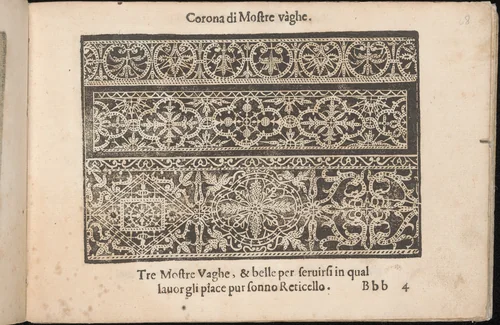 Corona di Mostre vàghe.
Tre Mostre Vaghe, & belle per seruirsi in qual
lauor gli piace pur sonno Reticello. Bbb 4